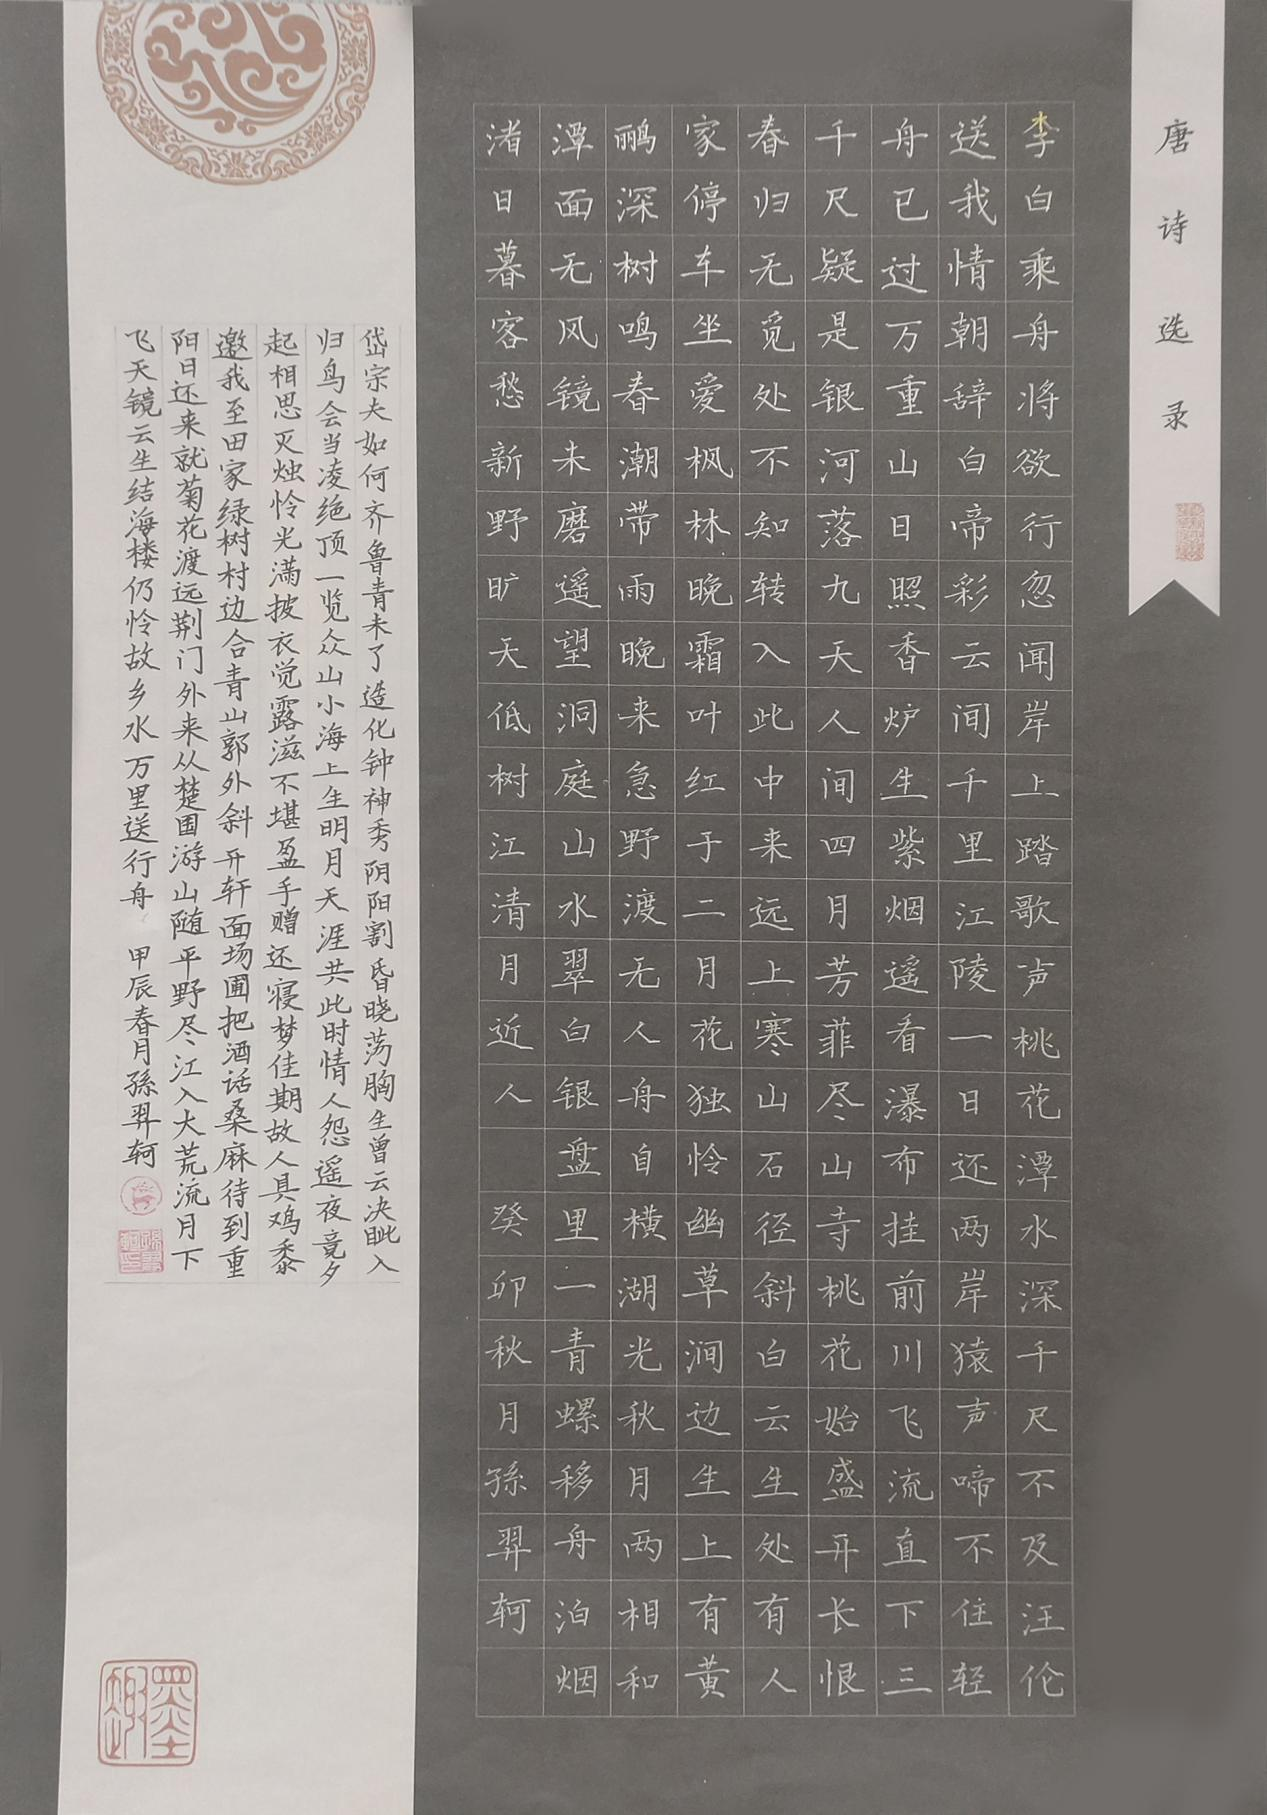 唐诗选录
李白乘舟将欲行忽闻岸上踏歌声桃花潭水深千尺不及汪伦
送我情朝辞白帝彩云间千里江陵一日还两岸猿声啼不住轻
舟已过万重山日照香炉生紫烟遥看瀑布挂前川飞流直下三
千尺疑是银河落九天人间四月芳菲尽山寺桃花始盛开长恨
春归无觅处不知转入此中来远上寒山石径斜白云生处有人
家停车坐爱枫林晚霜叶红于二月花独怜幽草涧边生上有黄
鹂深树鸣春潮带雨晚来急野渡无人舟自横湖光秋月两相和
潭面无风镜未磨遥望洞庭山水翠白银盘里一青螺移舟泊烟
渚日暮客愁新野旷天低树江清月近人 癸卯秋月孫羿轲
岱宗夫如何齐鲁青未了造化钟神秀阴阳割昏晓荡胸生曾云决眦入
归鸟会当凌绝顶一览众山小海上生明月天涯共此时情人怨遥夜竟夕
起相思灭烛怜光满披衣觉露滋不堪盈手赠还寝梦佳期故人具鸡黍
邀我至田家绿树村边合青山郭外斜开轩面场圃把酒话桑麻待到重
阳日还来就菊花渡远荆门外来从楚国游山随平野尽江入大荒流月下
飞天镜云生结海楼仍怜故乡水万里送行舟 甲辰春月孫羿轲
墨趣